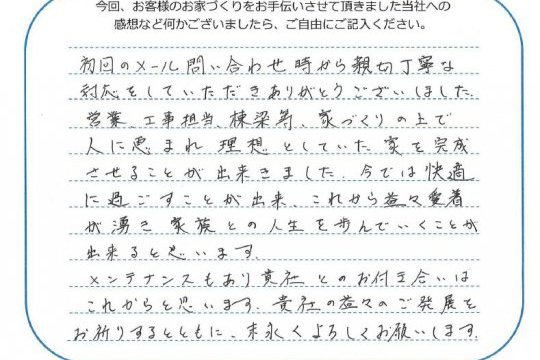 今回、お客様のお家づくりをお手伝いさせて頂きました当社への
感想など何かございましたら、ご自由にご記入ください。
初回のメール問い合わせ時から親切丁寧な
対応をしていただきありがとうございました。
営業、工事担当、棟梁等、家づくりの上で
人に恵まれ理想としていた家を完成
させることが出来きました。今では快適
に過ごすことが出来、これから益々愛着
が湧き家族との人生を歩んでいくことが
出来ると思います。
メンテナンスもあり貴社とのお付き合いは
これからと思います。貴社の益々のご発展を
お祈りするとともに、末永くよろしくお願いします。